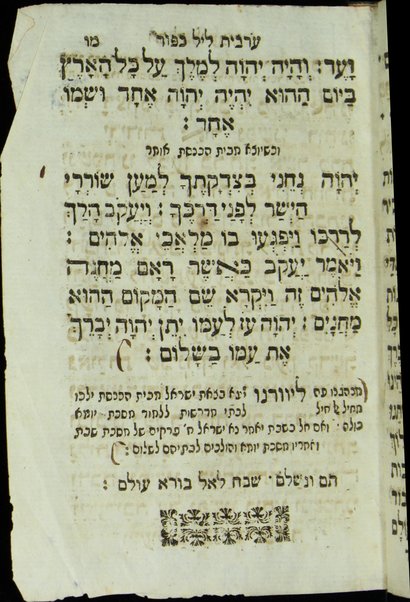 ערבית ליל כפור מו
וָעֶד: וְהָיָה יְהֹוָה לְמֶלֶךְ עַל כָּל הָאָרֶץ
בַּיּוֹם הַהוּא יִהְיֶה יְהֹוָה אֶחָד וּשְׁמוֹ
אֶחָד:
וכשיוצא מבית הכנסת אומר
יְהֹוָה נְחֵנִי בְצִדְקָתֶךָ לְמַעַן שׁוֹרְרָי
הַיְשַׁר לְפָנַי דַּרְכֶּךָ: וְיַעֲקֹב הָלַךְ
לְדַרְכּוֹ וַיִּפְגְּעוּ בוֹ מַלְאֲכֵי אֱלֹהִים:
וַיֹּאמֶר יַעֲקֹב כַּאֲשֶׁר רָאָם מַחֲנֵה
אֱלֹהִים זֶה וַיִּקְרָא שֵׁם הַמָּקוֹם הַהוּא
מַחֲנָיִם: יְהֹוָה עֹז לְעַמּוֹ יִתֵּן יְהֹוָה יְבָרֵךְ
אֶת עַמּוֹ בַשָּׁלוֹם:
מנהגנו פה ליוורנו יצא בצאת ישראל מבית הכנסת ילכו
מחיל אל חיל לבתי מדרשות ללמוד מסכת יומא
כולה. ואם חל בשבת יאמר נא ישראל ח׳ פרקים של מסכת שבת
ואחריו מסכת יומא והולכים לבתיהם לשלום:
תם ונשלם. שבח לאל בורא עולם: